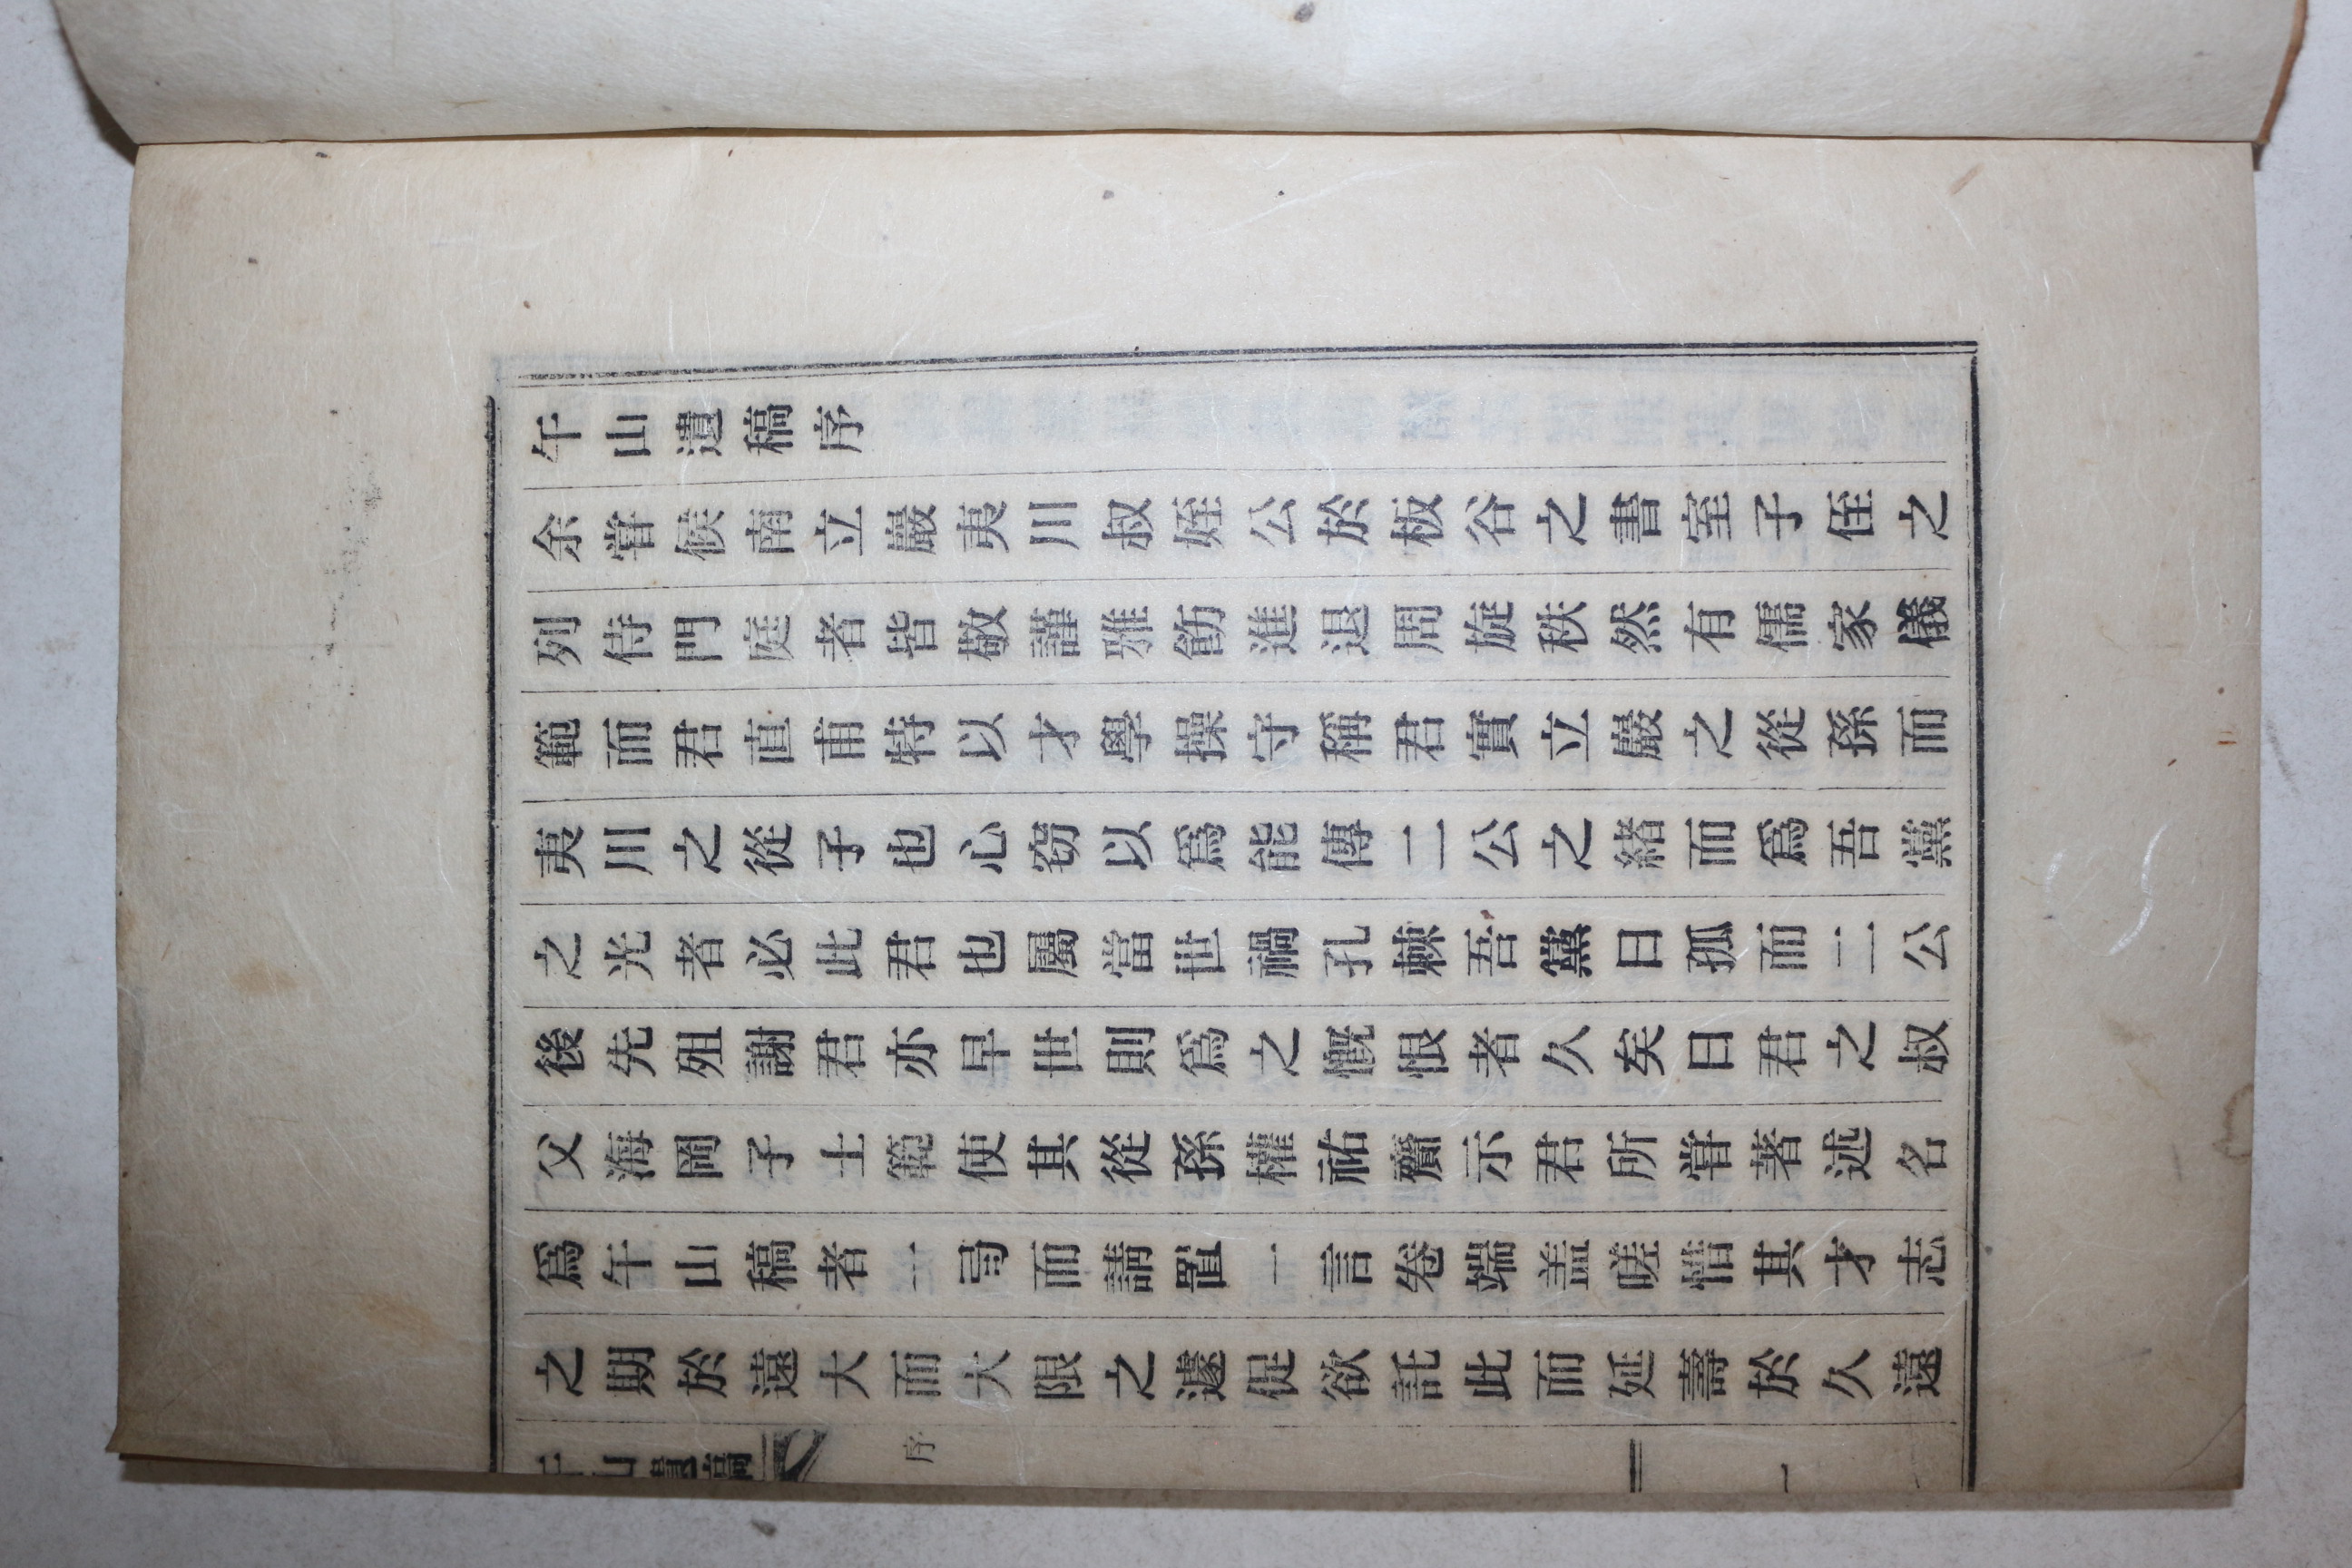 午山遺稿序
余甞候南立巖夷川叔姪公於板谷之書室子侄之
列侍門庭者皆敬謹雅飭進退周旋秩然有儒家儀
範而君直甫特以才學操守稱君實立巖之從孫而
夷川之從子也心窃以爲能傳二公之緖而爲吾黨
之光者必此君也屬當世禍孔棘吾黨日孤而二公
後先殂謝君亦早世則爲之慨恨者久矣日君之叔
父海岡子士範使其從孫權祐齎示君所甞著述名
爲午山稿者一㢧而請置一言卷端盖嗟惜其才志
之期於遠大而大限之遽促欲託此而延壽於久遠
午山遺稿 序 一